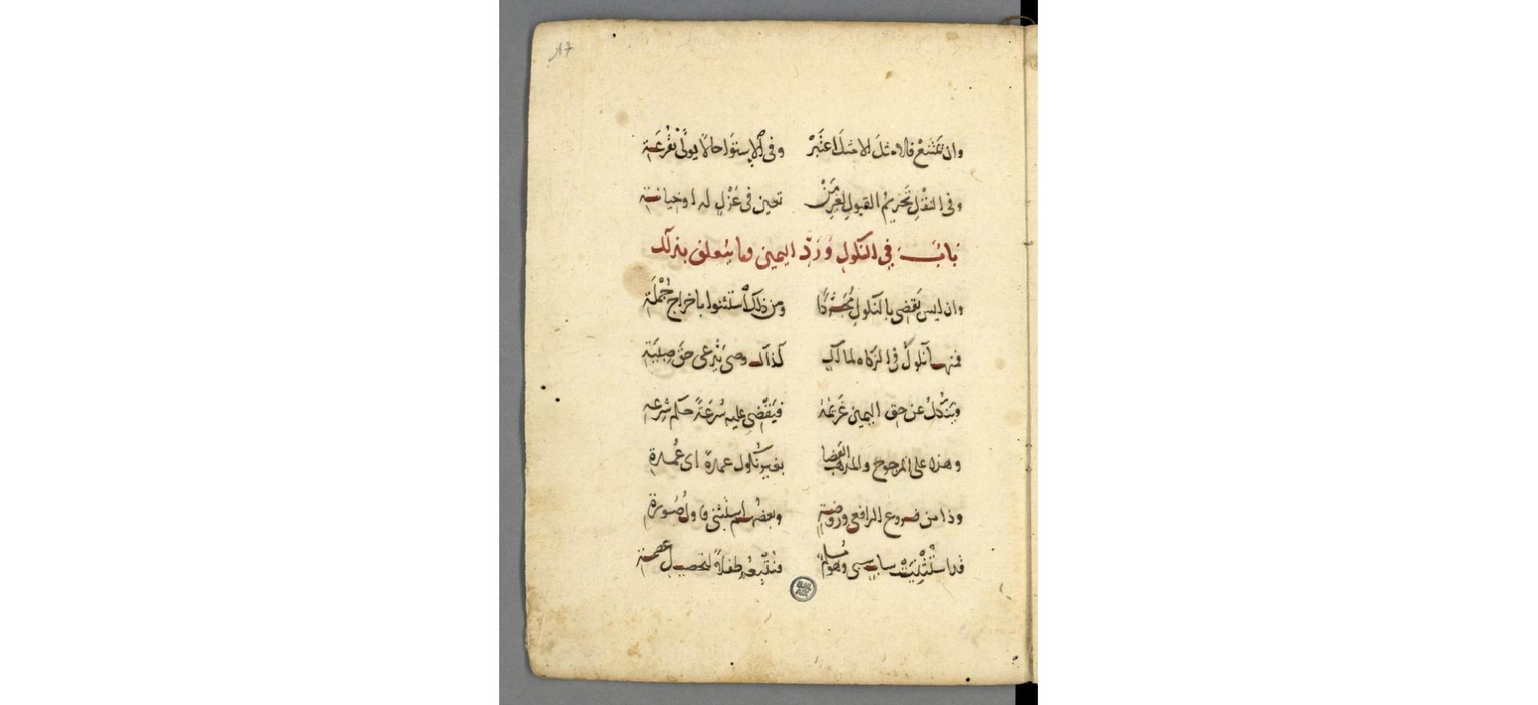 وان تمتنع فالامثل الامثل اعتبر وفى الاستوا حالا يولى بقرعة
وفى النقل تحريم القبول لغير من تعين فى عزل له او خيانة
باب فى النكول ورد اليمين وما يتعلق بذلك
وان ليس يقضى بالنكول مجردا ومن ذلك استثنوا باخراج جملة
فمنها نكول فى الزكاه لمالك كذاك وصى يدعى حق صبية
وينكل عن حق اليمين غريمه فيقضى عليه سرعة حكم شرعة
وهذا على المرجوح والمذهب القضا بغير نكول عمدة اى عمدة
وذا من فروع الرافعى وروضة وبعضهم استثنى فاول صورة
قد استثنيت سابسى وهو مسلم فنتبعه طفلا لتحصيل عصمة